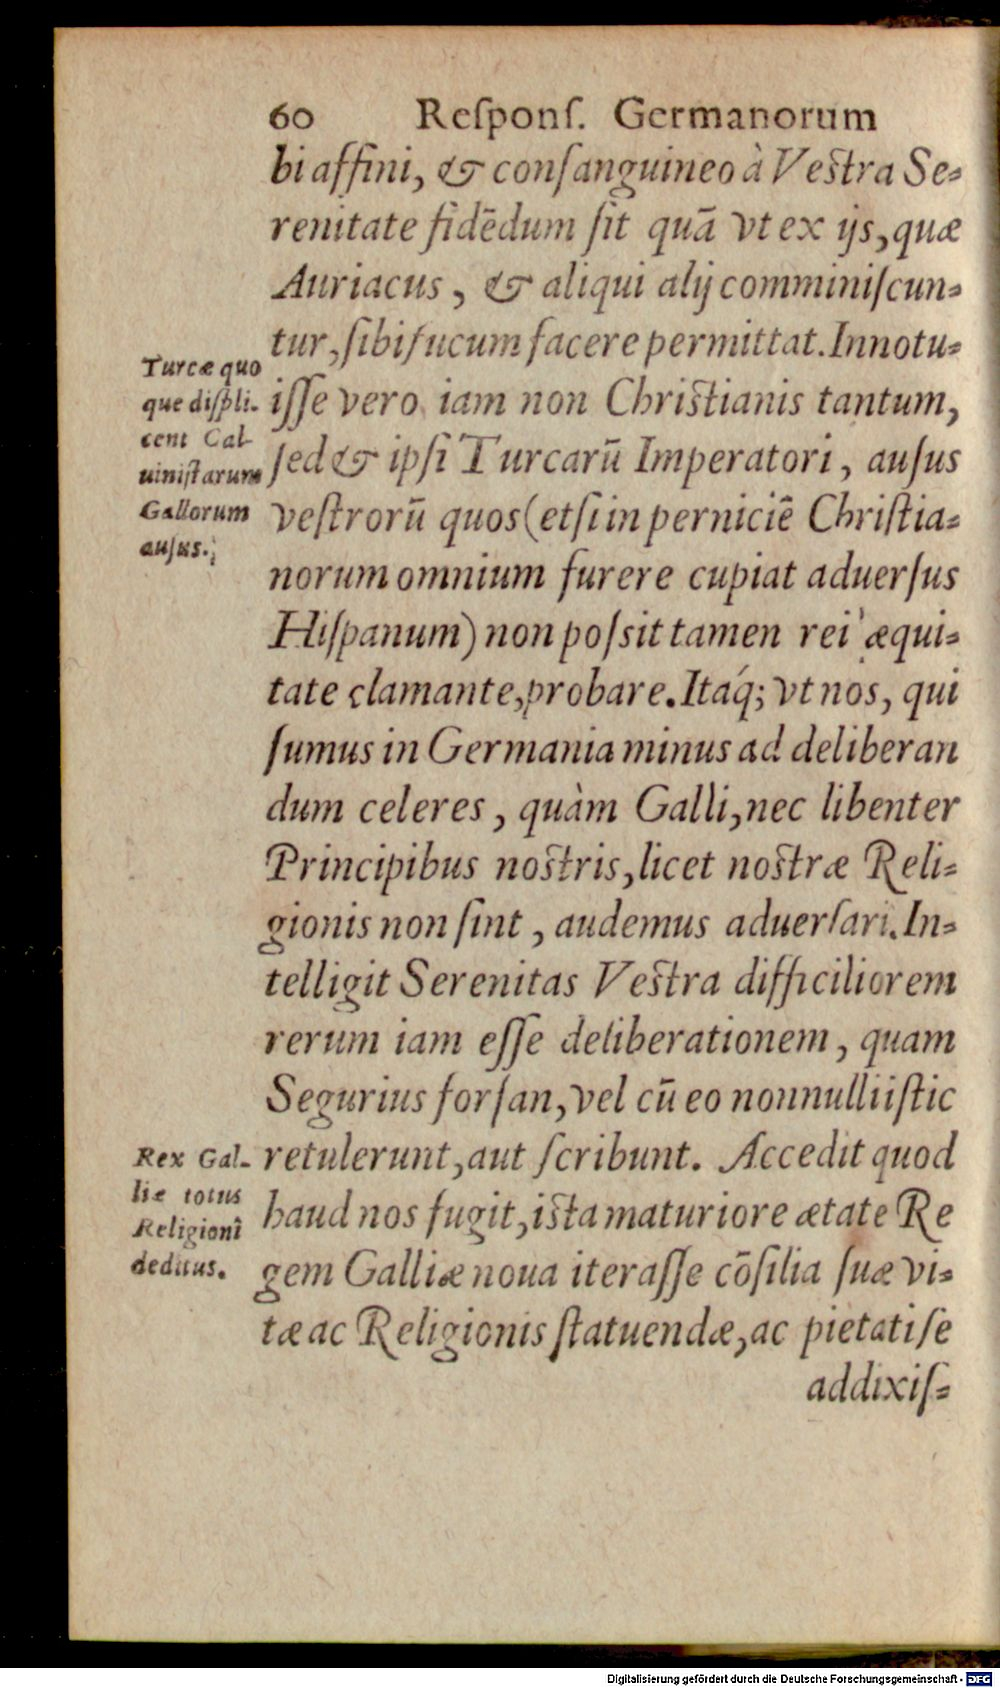 60 Reſponſ. Germanorum
bi affini, & conſanguineo à Veſtra Se-
renitate fidēdum ſit quā vt ex ijs, quæ
Auriacus, & aliqui alij comminiſcun-
tur, ſibi fucum facere permittat. Innotu-
iſſe vero iam non Chriſtianis tantum,
ſed & ipſi Turcarū Imperatori, auſus
veſtrorū quos (etſi in perniciē Chriſtia-
norum omnium furere cupiat aduerſus
Hiſpanum) non poſsit tamen rei æqui-
tate clamante, probare. Itaq́; vt nos, qui
ſumus in Germania minus ad deliberan
dum celeres, quàm Galli, nec libenter
Principibus noſtris, licet noſtræ Reli-
gionis non ſint, audemus aduerſari. In-
telligit Serenitas Veſtra difficiliorem
rerum iam eſſe deliberationem, quam
Segurius forſan, vel cū eo nonnulli iſtic
retulerunt, aut ſcribunt. Accedit quod
haud nos fugit, iſta maturiore ætate Re
gem Galliæ noua iteraſſe cōſilia ſuæ vi-
tæ ac Religionis ſtatuendæ, ac pietati ſe
addixiſ-
Turcæ quo
que diſpli-
cent Cal-
uiniſtarum
Gallorum
auſus.
Rex Gal-
liæ totus
Religioni
deditus.
Digitalisierung gefördert durch die Deutsche Forschungsgemeinschaft - DFG